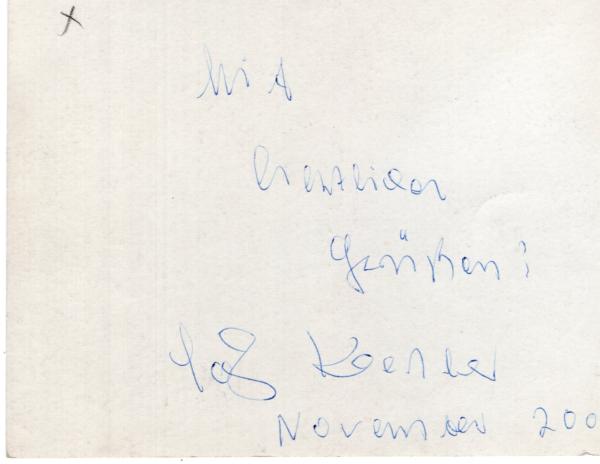 x
Mit
herzlichen
Grüßen!
November 200